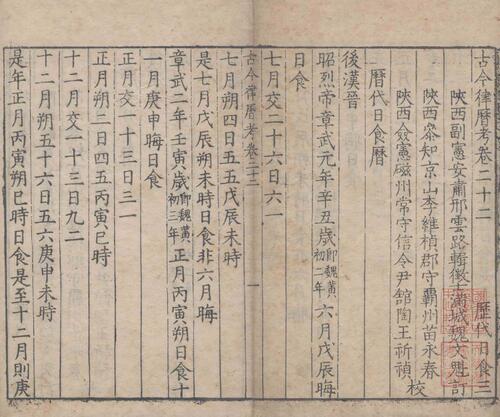 古今律曆考卷二十二
歷代日食三
陝西副憲安肅邢雲路輯徵士滿城魏文魁訂
陝西叅知京山李維楨郡守霸州苗永春
陝西僉憲磁州常守信令尹館陶王祈禎
校
曆代日食曆
後漢晉
昭烈帝章武元年辛丑歲即魏黃初二年六月戊辰晦
日食
七月交二十六日六一
七月朔四日五五戊辰未時
古今律曆考卷二十二 一
是七月戊辰朔未時日食非六月晦
章武二年壬寅歲即魏黃初三年正月丙寅朔日食十
一月庚申晦日食
正月交一十三日三一
正月朔二日四五丙寅巳時
十二月交一十三日九二
十二月朔五十六日五六庚申未時
是年正月丙寅朔巳時日食是至十二月則庚